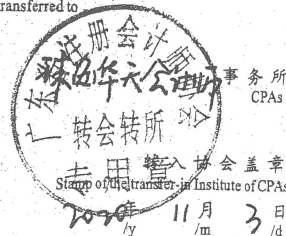 ransferred to
事务所
CPAs
广东省注册会计师协会
转会转所
专用章
转入协会盖章
Stamp of the transfer-in Institute of CPAs
2020年 11月 3日
/y /m /d